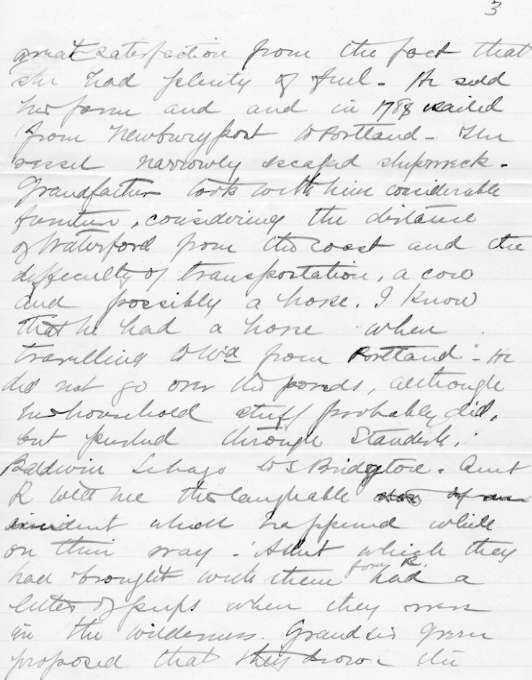 3
great satisfaction from the fact that
she had plenty of fuel - He sold
his farm and and in 1788 sailed
from Newburyport to Portland - The
vessel narrowly escaped shipwreck.
Grandfather took with him considerable
furniture, considering the distance
of Waterford from the coast and the
difficulty of transportation, a cow
and possibly a horse. I know
that he had a horse when
travelling to Wd from Portland - He
did not go over the ponds, although
his household stuff probably did,
but pushed through Standish,
Baldwin Sebago to S Bridgton. Aunt
R told me the laughable
incident which happened while
on their way. A slut which they
had brought with them from R. had a
litter of pups when they were
in the wilderness. Grandsir Green
proposed that they drown the